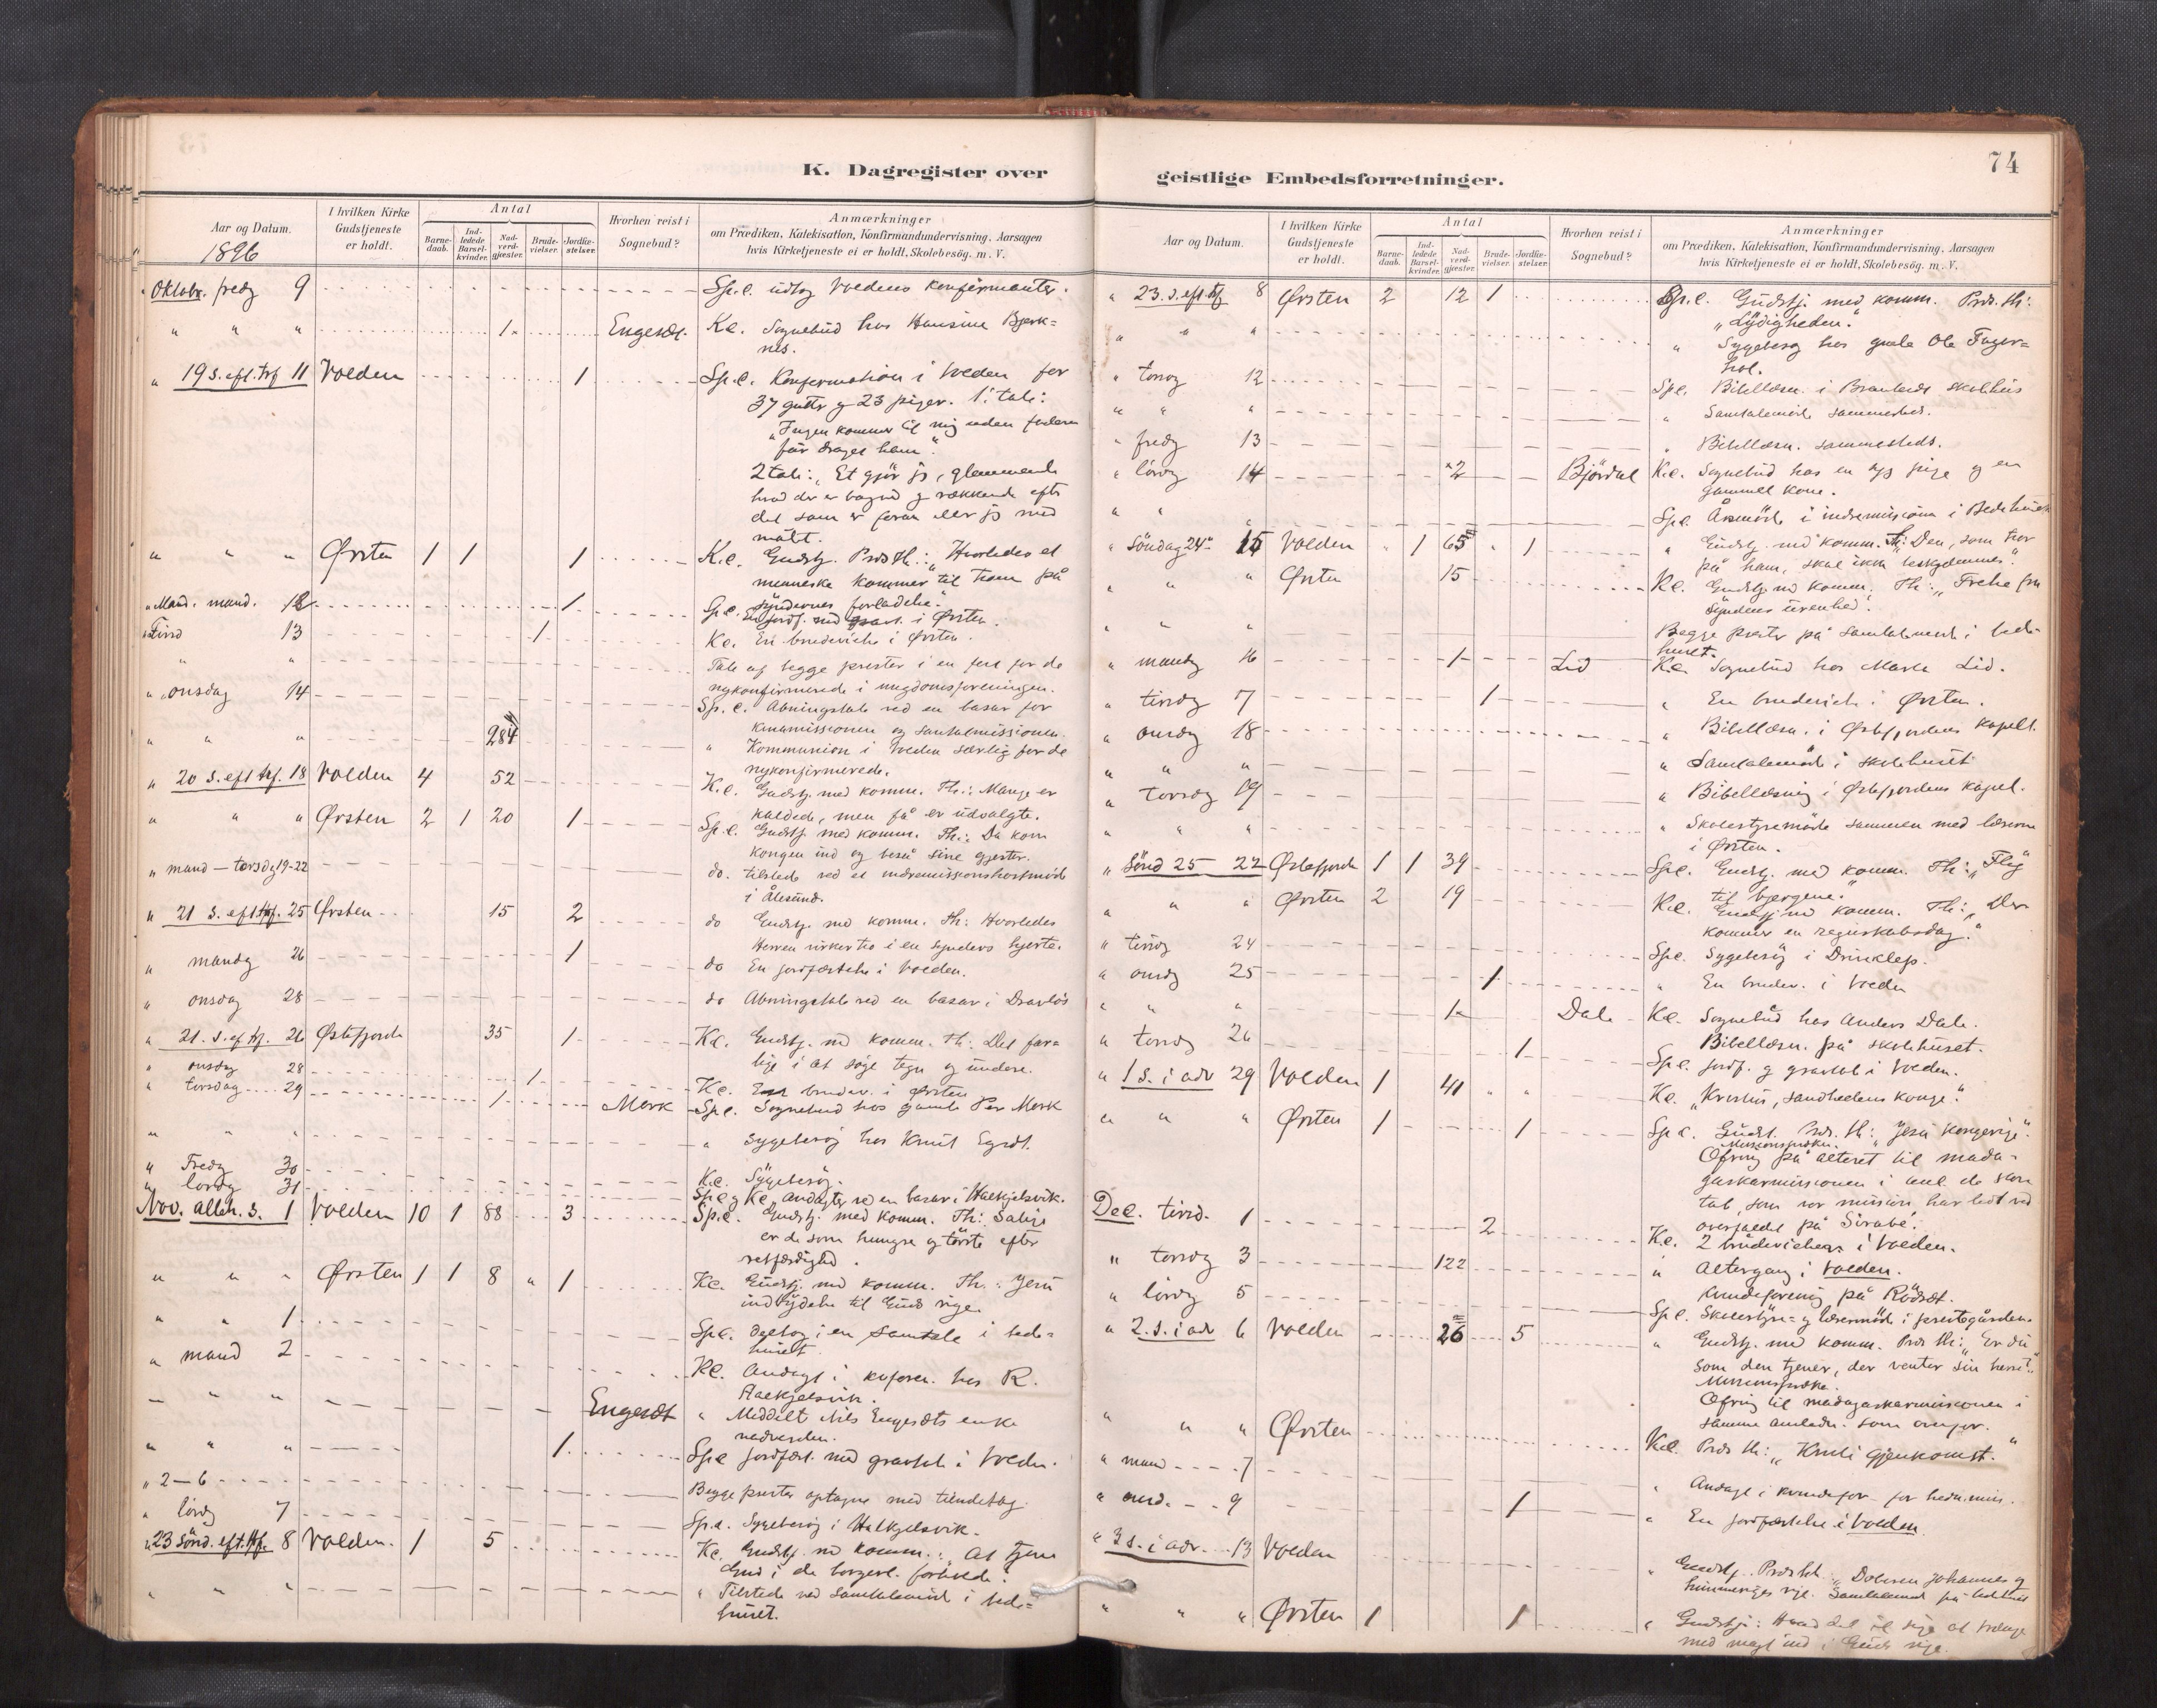 74
K. Dagregister over
Aar og Datum.
1896
I hvilken Kirke Gudstjeneste er holdt.
Antal
Barne-daab.
Ind-ledede Barsel-kvinder.
Nad-verd-gjæster.
Brude-vielser.
Jordfæ-stelser.
Hvorhen reist i Sognebud?
Anmærkninger
om Prædiken, Katekisation, Konfirmandundervisning, Aarsagen
hvis Kirketjeneste ei er holdt, Skolebesög. m. V.
Oktobr. fredg 9 Sp.c. Voldens konfirmanter.
" " " 1 Kc. Sognebud hos Hansine Bjerk=
nes.
" 19 s. eft. trf 11 Volden 1 Sp.c. Konfirmation i Volden for
37 gutter og 23 piger. 1. tale:
"Ingen kommer til mig uden faderen
får draget ham".
2 tale: "Et gjör jeg, glemmende
hvad der er bagved og rækkende efter
det som er foran iler jeg mod
målet.
" " " Ørsten 1 1 1 K.c. Gudstj. Præd. th.: "Hvorledes et
menneske kommer til troen på
syndernes forladelse."
" mand. 12 1 Sp.c. i Ørsten.
" Tirsd 13 1 Kc. En brudevielse i Ørsten.
" " Tale af begge prester i en fest for de
nykonfirmerede i ungdomsforeningen.
" onsdag 14 Sp.c. Åbningstale ved en basar for
kinamissionen og santalmissionen.
" " " 284 " Kommunion i Volden særlig for de
nykonfirmerede.
" 20 s. eft trf. 18 Volden 4 52 K.c. Gudstj. med komm. Th.: Mange er
kaldede, men få er udvalgte.
" " " Ørsten 2 1 20 1 Sp.c. Gudstj. med komm. Th.: Da kom
kongen ind og beså sine gjester.
" mand — torsdg 19-22 do. tilstede ved et indremissionshöstmöde
i Ålesund.
" 21 s. eft trf. 25 Ørsten 15 2 do Gudstj. med komm. Th: Hvorledes
Herren virker tro i en synders hjerte.
" mandg 26 1 do En jordfæstelse i Volden.
" onsdag 28 do Åbningstale ved en basar i Dravlös
" 21. s. ef trf. 26 Østefjorde 35 1 Kc. Gudstj. med komm. Th: Det far=
lige i at söge tegn og undere.
" onsdg 28 1 Kc. brudev. i Ørsten
" torsdag 29 1 Mork Sp.c. Sognebud hos gamle Per Mork
" " " " Sygebesög hos Knut Egset.
" Fredg 30 K.c. Sygebesög.
" lördg 31 Sp.c og Kc. Andagter ved en basar i Halkjelsvik.
Nov. alleh. s. 1 Volden 10 1 88 3 Sp.c. Gudstj. med komm. Th: Salige
er de som hungre og törste efter
retfærdighed.
" " " Ørsten 1 1 8 " 1 Kc. Gudstj. med komm. Th.: Jesu
indbydelse til Guds rige
" " 1 Sp.c. deltog i en Samtale i bede=
huset
" mand 2 Kc. Andagt i kvforen. hos R.
Halkjelsvik.
" " " Engeset " Meddelt Nils Engesets enke
nadverden.
" " " 1 Sp.c jordfæst. med gravtale i Volden.
" 2—6 Begge prester optagne med tiendetog.
" lördg 7 Sp.c. Sygebesög i Halkjelsvik.
" 23 sönd. eft. trf. 8 Volden. 1 5 Kc. Gudstj. med komm.: At tjene
Gud i de borgerl. forhold.
" " " " Tilstede ved samtalemöde i bede=
huset.
geistlige Embedsforretninger.
Aar og Datum.
I hvilken Kirke Gudstjeneste er holdt.
Antal
Barne-daab.
Ind-ledede Barsel-kvinder.
Nad-verd-gjæster.
Brude-vielser.
Jordfæ-stelser.
Hvorhen reist i Sognebud?
Anmærkninger
om Prædiken, Katekisation, Konfirmandundervisning, Aarsagen
hvis Kirketjeneste ei er holdt, Skolebesög. m. V.
" 23. s. eft. trf 8 Ørsten 2 12 1 Sp.c. Gudstj. med komm. Præd. th:
"Lydigheden."
" " " " Sygebesög hos gamle Ole Fager=
hol.
" torsdg 12 Sp.c. Bibellæsn. i skolehus
" " " " Samtalemöde sammesteds.
" fredg 13 " Bibellæsn. sammesteds.
" lördg 14 2 Björdal K.c. Sognebud hos en syg pige og en
gammel kone.
" " " Sp.c. Årsmöde i indremissionen i Bedehuset
" söndag 24" 15 Volden " 1 65 " 1 " Gudstj. med komm. Th: "Den, som tror
på ham, skal ikke
" " " Ørsten 15 Kc. Gudstj. med komm. Th: "Frelse fra
syndens urenhed".
" " " Begge prester på samtalemöde i bede=
huset.
" mandg 16 1 Lid Kc. Sognebud hos Marte Lid.
" tirsdg 17 1 " En brudevielse i Ørsten.
" onsdg 18 " Bibellæsn. i Østefjordens kapel.
" " " " Samtalemöde i skolehuset
" torsdg 19 " Bibellæsning i Østefjordens kapel.
" " " " Skolestyremöde sammen med læserne
i Ørsten.
" Sönd 25 22 Østefjorde 1 1 39 Sp.c. Gudstj. med komm. Th: "Flyg
til bjergene"
" " " Ørsten 2 19 K.c. Gudstj med komm. Th: "Der
kommer en regnskabsdag."
" tirsdg 24 Sp.c. Sygebesög i
" onsdg 25 1 " En brudev. i Volden
" " " 1 Dale Kc. Sognebud hos Anders Dale.
Bibellæsn. på skolehuset.
" torsdg 26 1 Sp.c. jordf. og gravtale i Volden.
" 1 s. i adv 29 Volden 1 41 " " Kc. "Kristus, sandhedens konge".
" " " Ørsten 1 1 Sp.c. Gudst. Præd. th: "Jesu kongerige".
Missionspræken.
Ofring på alteret til mada=
gaskarmissionen i anl. de store
tab, som vor mission har lidt ved
overfaldet på Sirabe.
Dec. tirsd. 1 2 Kc. 2 brudevielser i Volden.
" torsdg 3 122 " Altergang i Volden.
" lördg 5 Kvindeforening på Rödset.
Sp.c. Skolestyre= og læsermöde i prestegården.
" 2. s. i adv 6 Volden 26 5 " Gudstj. med komm. Præd th: "Er du
som den tjener, der venter sin herre".
Missionspræken.
Ofring til madagaskarmissionen i
samme anledn. som ovenfor.
" " " Ørsten K.c. Præd th: "Kristi gjenkomst."
" mand 7 " Andagt i kvindefor for hedn.miss.
" onsd. 9 1 " En jordfæstelse i Volden.
" 3 s. i adv. 13 Volden " Gudstj. Præd th. "Döberen Johannes og
himmeriges rige. Samtalemöde på bedehuset
" " " Ørsten 1 1 " Gudstj.: Hvad det vil sige at trænge
med magt ind i Guds rige.